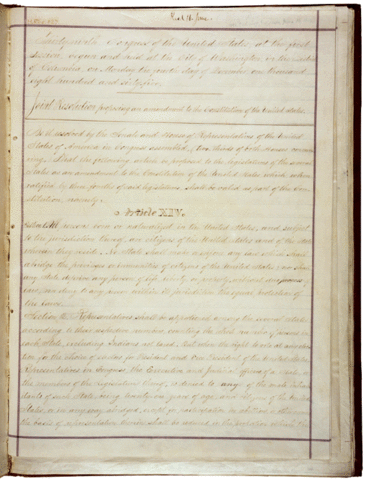 Thirty-ninth Congress of the United States, at the first
session, begun and held at the City of Washington, in the
of December, on Monday the fourth day of December one thousand
eight hundred and sixty-five.
Joint Resolution proposing an amendment to the Constitution of the United States.
Be it resolved by the Senate and House of Representatives of the United
States of America in Congress assembled, two thirds of both Houses
That the following article be proposed to the legislatures of the several
States as an amendment to the Constitution of the United States which, when
ratified by three fourths of said legislatures shall be valid as part of the
Article XIV.
Section
to the jurisdiction thereof, are citizens of the United States and of the State
wherein they reside. No State shall make or enforce any law which shall
abridge the privileges or immunities of citizens of the United States; nor shall
any State deprive any person of life, liberty, or property, without
nor deny to any person within its jurisdiction the equal protection of
the laws.
Section 2. Representatives shall be apportioned among the several States
according to their respective numbers, counting the whole number of persons in
each State, excluding Indians not taxed. But when the right to vote at any
for the choice of electors for President and Vice President of the United States,
Representatives in Congress, the Executive and Judicial officers of a State, or
the members of the Legislature thereof, is denied to any of the male
of such State, being twenty-one years of age, and citizens of the United
States, or in any way abridged, except for participation in rebellion or other
the basis of representation therein shall be reduced in the proportion which